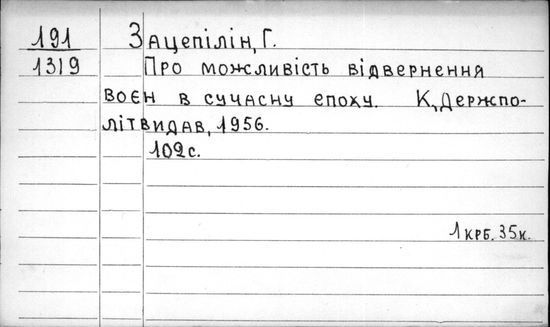 191 Зацепілін, Г.
1319 Про можливість відвернення
воєн в сучасну епоху. К., Держпо-
літвидав, 1956.
102с.
1 крб. 35к.